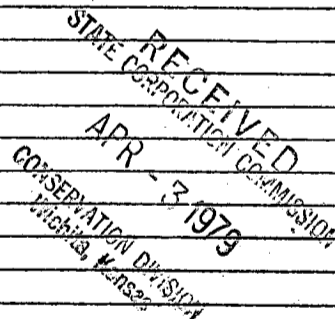 RECEIVED
STATE CORPORATION COMMISSION
APR - 3 1979
CONSERVATION DIVISION
Wichita, Kansas